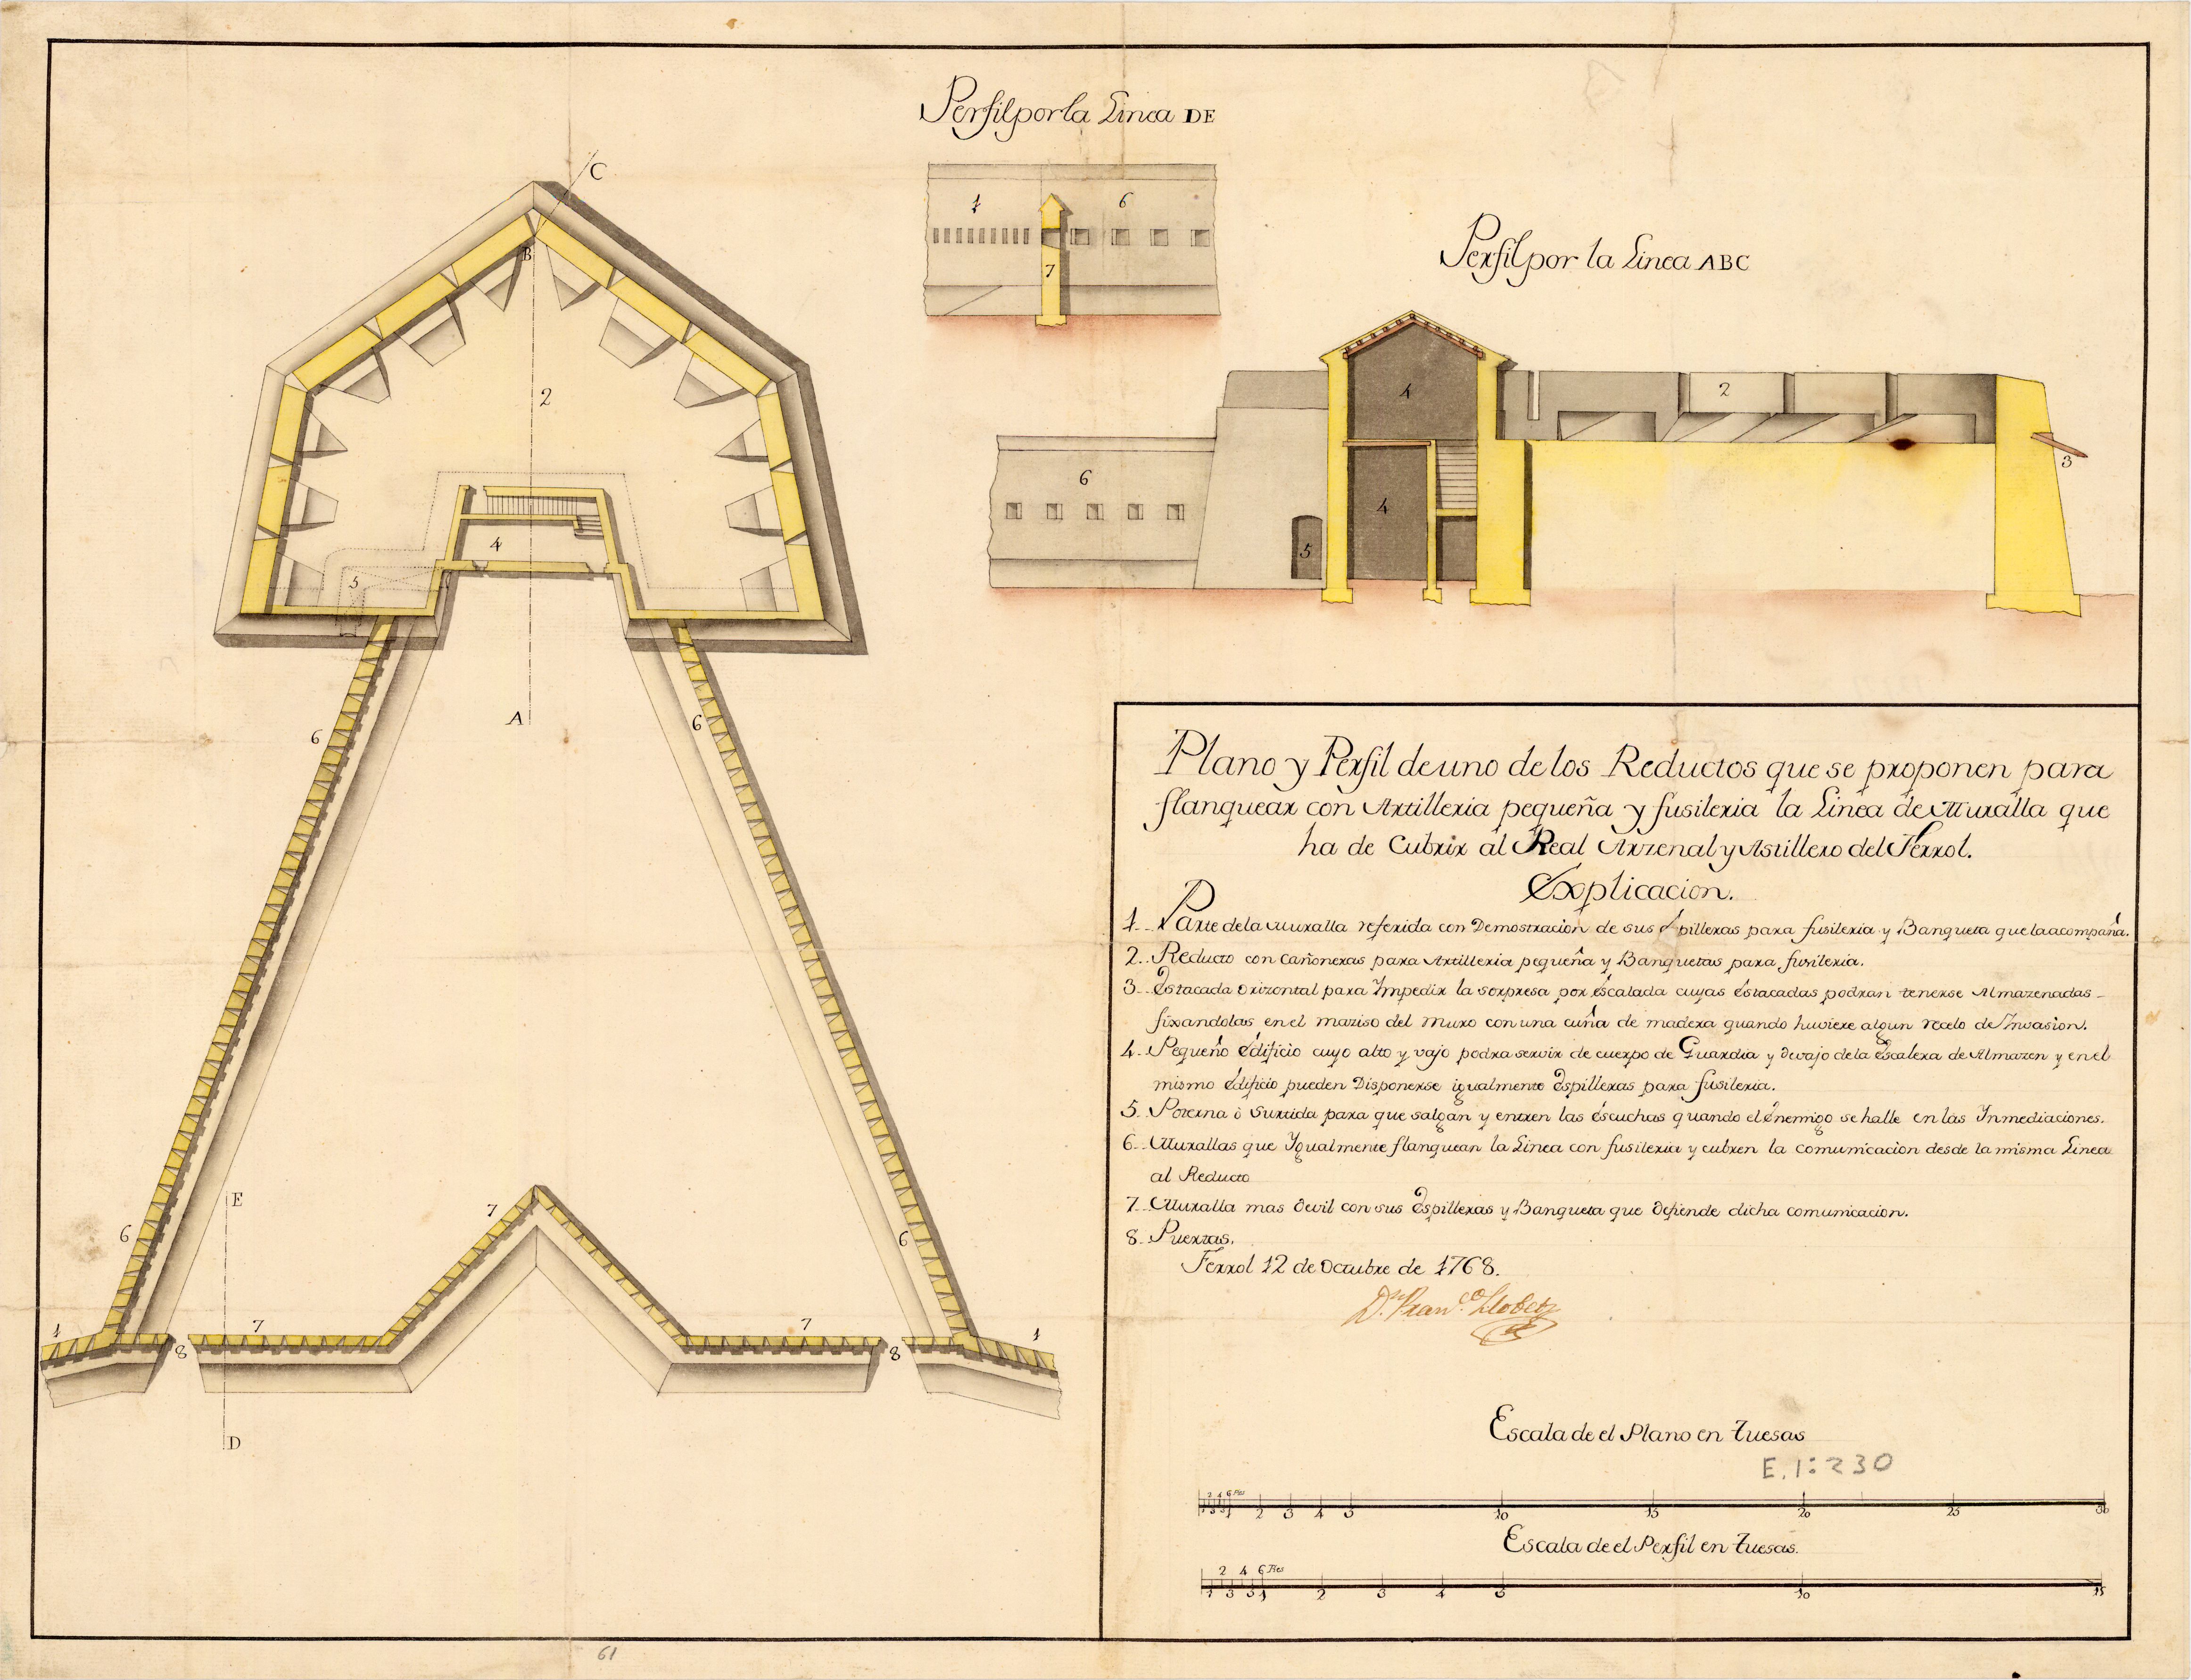 Perfil por la Linea DE
1
6
7
Perfil por la Linea ABC
4
2
3
6
4
5
C
B
2
4
5
A
6
6
E
7
6
6
1
8
7
7
8
1
D
Plano y Perfil de uno de los Reductos que se proponen para
flanquear con Artilleria pequeña y fusileria la Linea de Muralla que
ha de Cubrir al Real Arzenal y Astillero del Ferrol.
Explicacion.
1.. Parte de la Muralla referida con Demostracion de sus Espilleras para fusileria y Banqueta que la acompaña.
2.. Reducto con Cañoneras para Artilleria pequeña y Banquetas para fusileria.
3.. Estacada Orizontal para Impedir la sorpresa por éscalada cuyas éstacadas podran tenerse Almazenadas
fixandolas en el maziso del Muro con una cuña de madera quando huviere algun recelo de Invasion.
4.. Pequeño édificio cuyo alto y vajo podra servir de cuerpo de Guardia y devajo de la Escalera de Almazen y en el
mismo édificio pueden Disponerse igualmente Espilleras para fusileria.
5.. Poterna ò Surtida para que salgan y entren las éscuchas quando el énemigo se halle en las Inmediaciones.
6.. Murallas que Igualmente flanquean la Linea con fusileria y cubren la comunicacion desde la misma Linea
al Reducto
7.. Muralla mas devil con sus Espilleras y Banqueta que defiende dicha comunicacion.
8.. Puertas.
Ferrol 12 de Octubre de 1768.
Dn. Franco. Llobet
Escala de el Plano en Tuesas
E. 1:230
2 4 6 Pies
1 3 5 1 2 3 4 5 10 15 20 25 30
Escala de el Perfil en Tuesas.
2 4 6 Pies
1 3 5 1 2 3 4 5 10 15
61